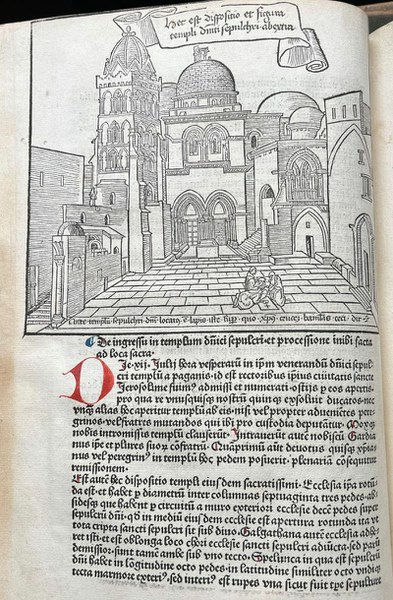 Hec est dispositio et figura
templi dñici sepulchri ab extra
Ante templũ sepulchri dñi locatꝰ ẽ lapis iste sup quo xp̃s crucẽ baiulãs ceci dit
De ingressu in templum dñici sepulcri et processione inibi facta
ad loca sacra.
Die xij Julij hora vesperarũ in ip̃m venerandũ dñici sepul
cri templũ a paganis id est rectoribus ipius ciuitatis sancte
Jerosolime fuimꝰ admissi et numerati ostijs eꝰ apertis
pro qua re vnusquisqꝫ nostrũ quinqꝫ exsoluit ducatos nec
vnqꝫ alias hoc aperitur templũ ab eis nisi vel propter aduenietes pere
grinos vel fratres mutandos qui ibi pro custodia deputãtur Mox qꝫ
nobis intromissis templũ clauserũt Intrauerũt autẽ nobiscũ Gardia
nus ip̃e et plures suoꝝ cõfratrũ Quãprimũ aũt deuotus quisqꝫ xp̃ia
nus vel peregrinꝰ in templũ hoc pedem posuerit plenariã cõsequitur
remissionem
Est autẽ hec dispositio templi eiusdem sacratissimi Ecclesia ip̃a rotũ
da est et habet p diametrũ inter columnas septuaginta tres pedes ab
sidesqꝫ que habent p circuitũ a muro exteriori ecclesie decẽ pedes super
sepulcrũ dñi qd in mediũ eiusdem ecclesie est apertura rotunda ita vt
tota cripta sancti sepulcri sit sub diuo Galgathana autẽ ecclesia adhe
ret isti et est oblonga loco chori ecclesie sancti sepulcri adiũcta sed parũ
demissior sunt tamẽ ambe sub vno tecto Spelunca in qua est sepulcrũ
dñi habet in lõgitudine octo pedes in latitudine similiter octo vndiqꝫ
tecta marmore exteriꝰ sed interiꝰ est rupes vna sicut fuit tp̃e sepulture